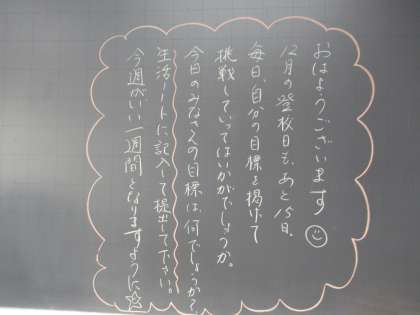 おはようございます
12月の登校日も、あと15日。
毎日、自分の目標を掲げて
挑戦していってはいかがでしょうか。
今日のみなさんの目標は、何でしょうか?
生活ノートに、記入して提出して下さい。
今週がいい一週間となりますように☆